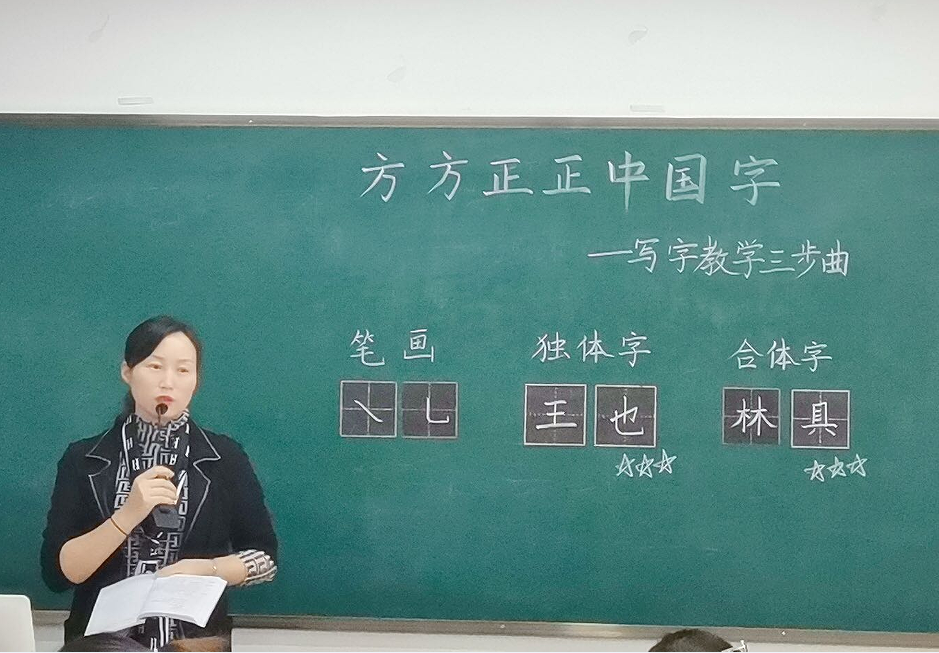 方方正正中国字
—写字教学三步曲
笔画 独体字 合体字
㇏ ㇄ 王 也 林 具